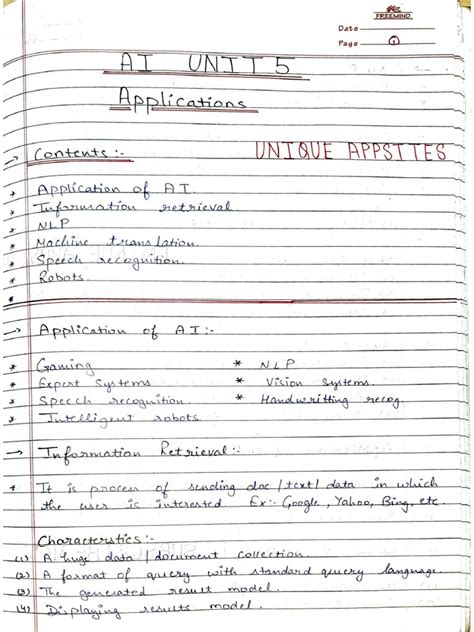 FREEMIND
Date
Page 1
AI UNIT 5
Applications
→ Contents :- UNIQUE APPSITES
* Application of AI.
* Information retrieval
* NLP
* Machine translation.
* Speech recognition.
* Robots.
*
→ Application of AI :-
* Gaming * NLP
* Expert Systems * Vision Systems.
* Speech recognition * Handwritting recog.
* Intelligent robots.
→ Information Retrieval :-
* It is process of sending doc / text / data in which
the user is interested Ex:- Google, Yahoo, Bing, etc.
Characterstics :-
(1) A huge data / document collection.
(2) A format of query with standard query language.
(3) The generated result model.
(4) Displaying results model.